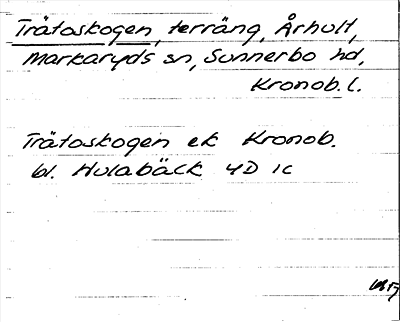 Trätaskogen, terräng, Århult,
Markaryds sn, Sunnerbo hd,
Kronob. l.
Trätaskogen ek Kronob.
bl. Hulabäck 4D 1c